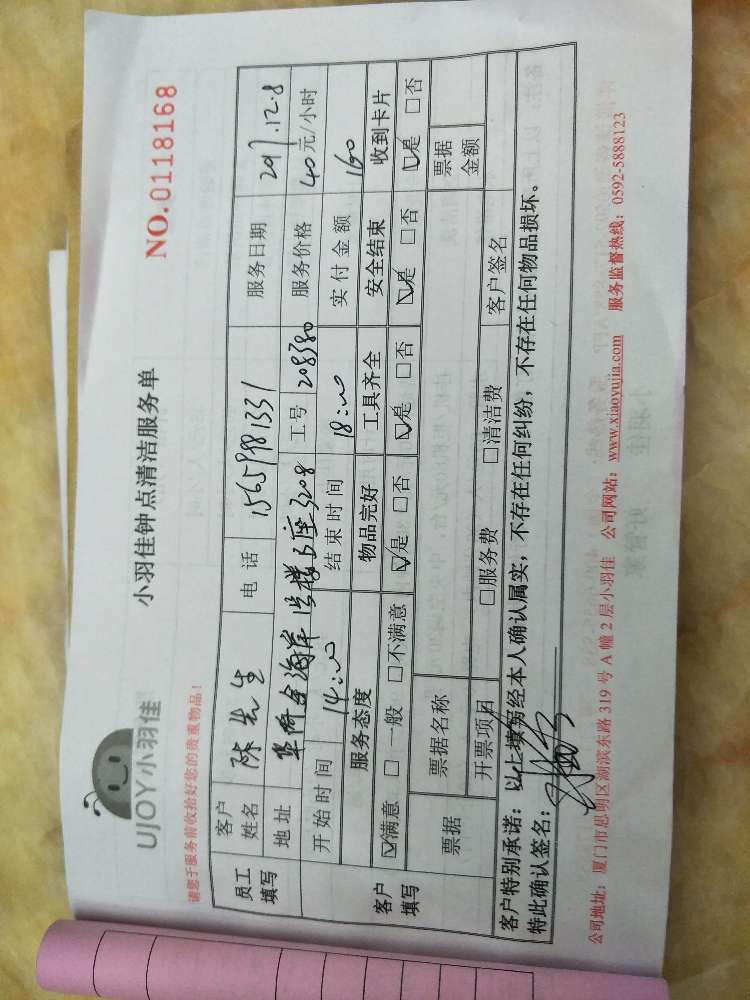 UJOY小羽佳
小羽佳钟点清洁服务单
NO.0118168
请您于服务前收拾好您的贵重物品！
员工填写
客户姓名 陈先生 电话 15659981331 服务日期 2017.12.8
地址 华侨金海岸 楼 座3208 工号 208380 服务价格 40元/小时
开始时间 14:00 结束时间 18:00 实付金额 160
客户填写
服务态度 物品完好 工具齐全 安全结束 收到卡片
☑满意 □一般 □不满意 ☑是 □否 ☑是 □否 ☑是 □否 ☑是 □否
票据 票据名称 票据金额
开票项目 □服务费 □清洁费 客户签名
客户特别承诺：以上填写经本人确认属实，不存在任何纠纷，不存在任何物品损坏。
特此确认签名：
公司地址：厦门市思明区湖滨东路 319 号 A 幢 2 层小羽佳 公司网站：www.xiaoyujia.com 服务监督热线：0592-5888123